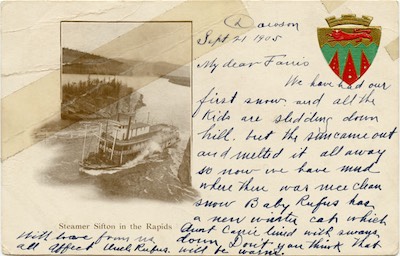 Dawson
Sept 21 1905
My dear Farris
We have had our
first snow and all the
kids are sledding down
hill. but the sun came out
and melted it all away
so now we have mud
where there was nice clean
snow Baby Rufus has
a new winter cat which
Aunt Carrie lined with swans
down Don't you think that
will be warm.
With love from us
all Affect Uncle Rufus.
Steamer Sifton in the Rapids